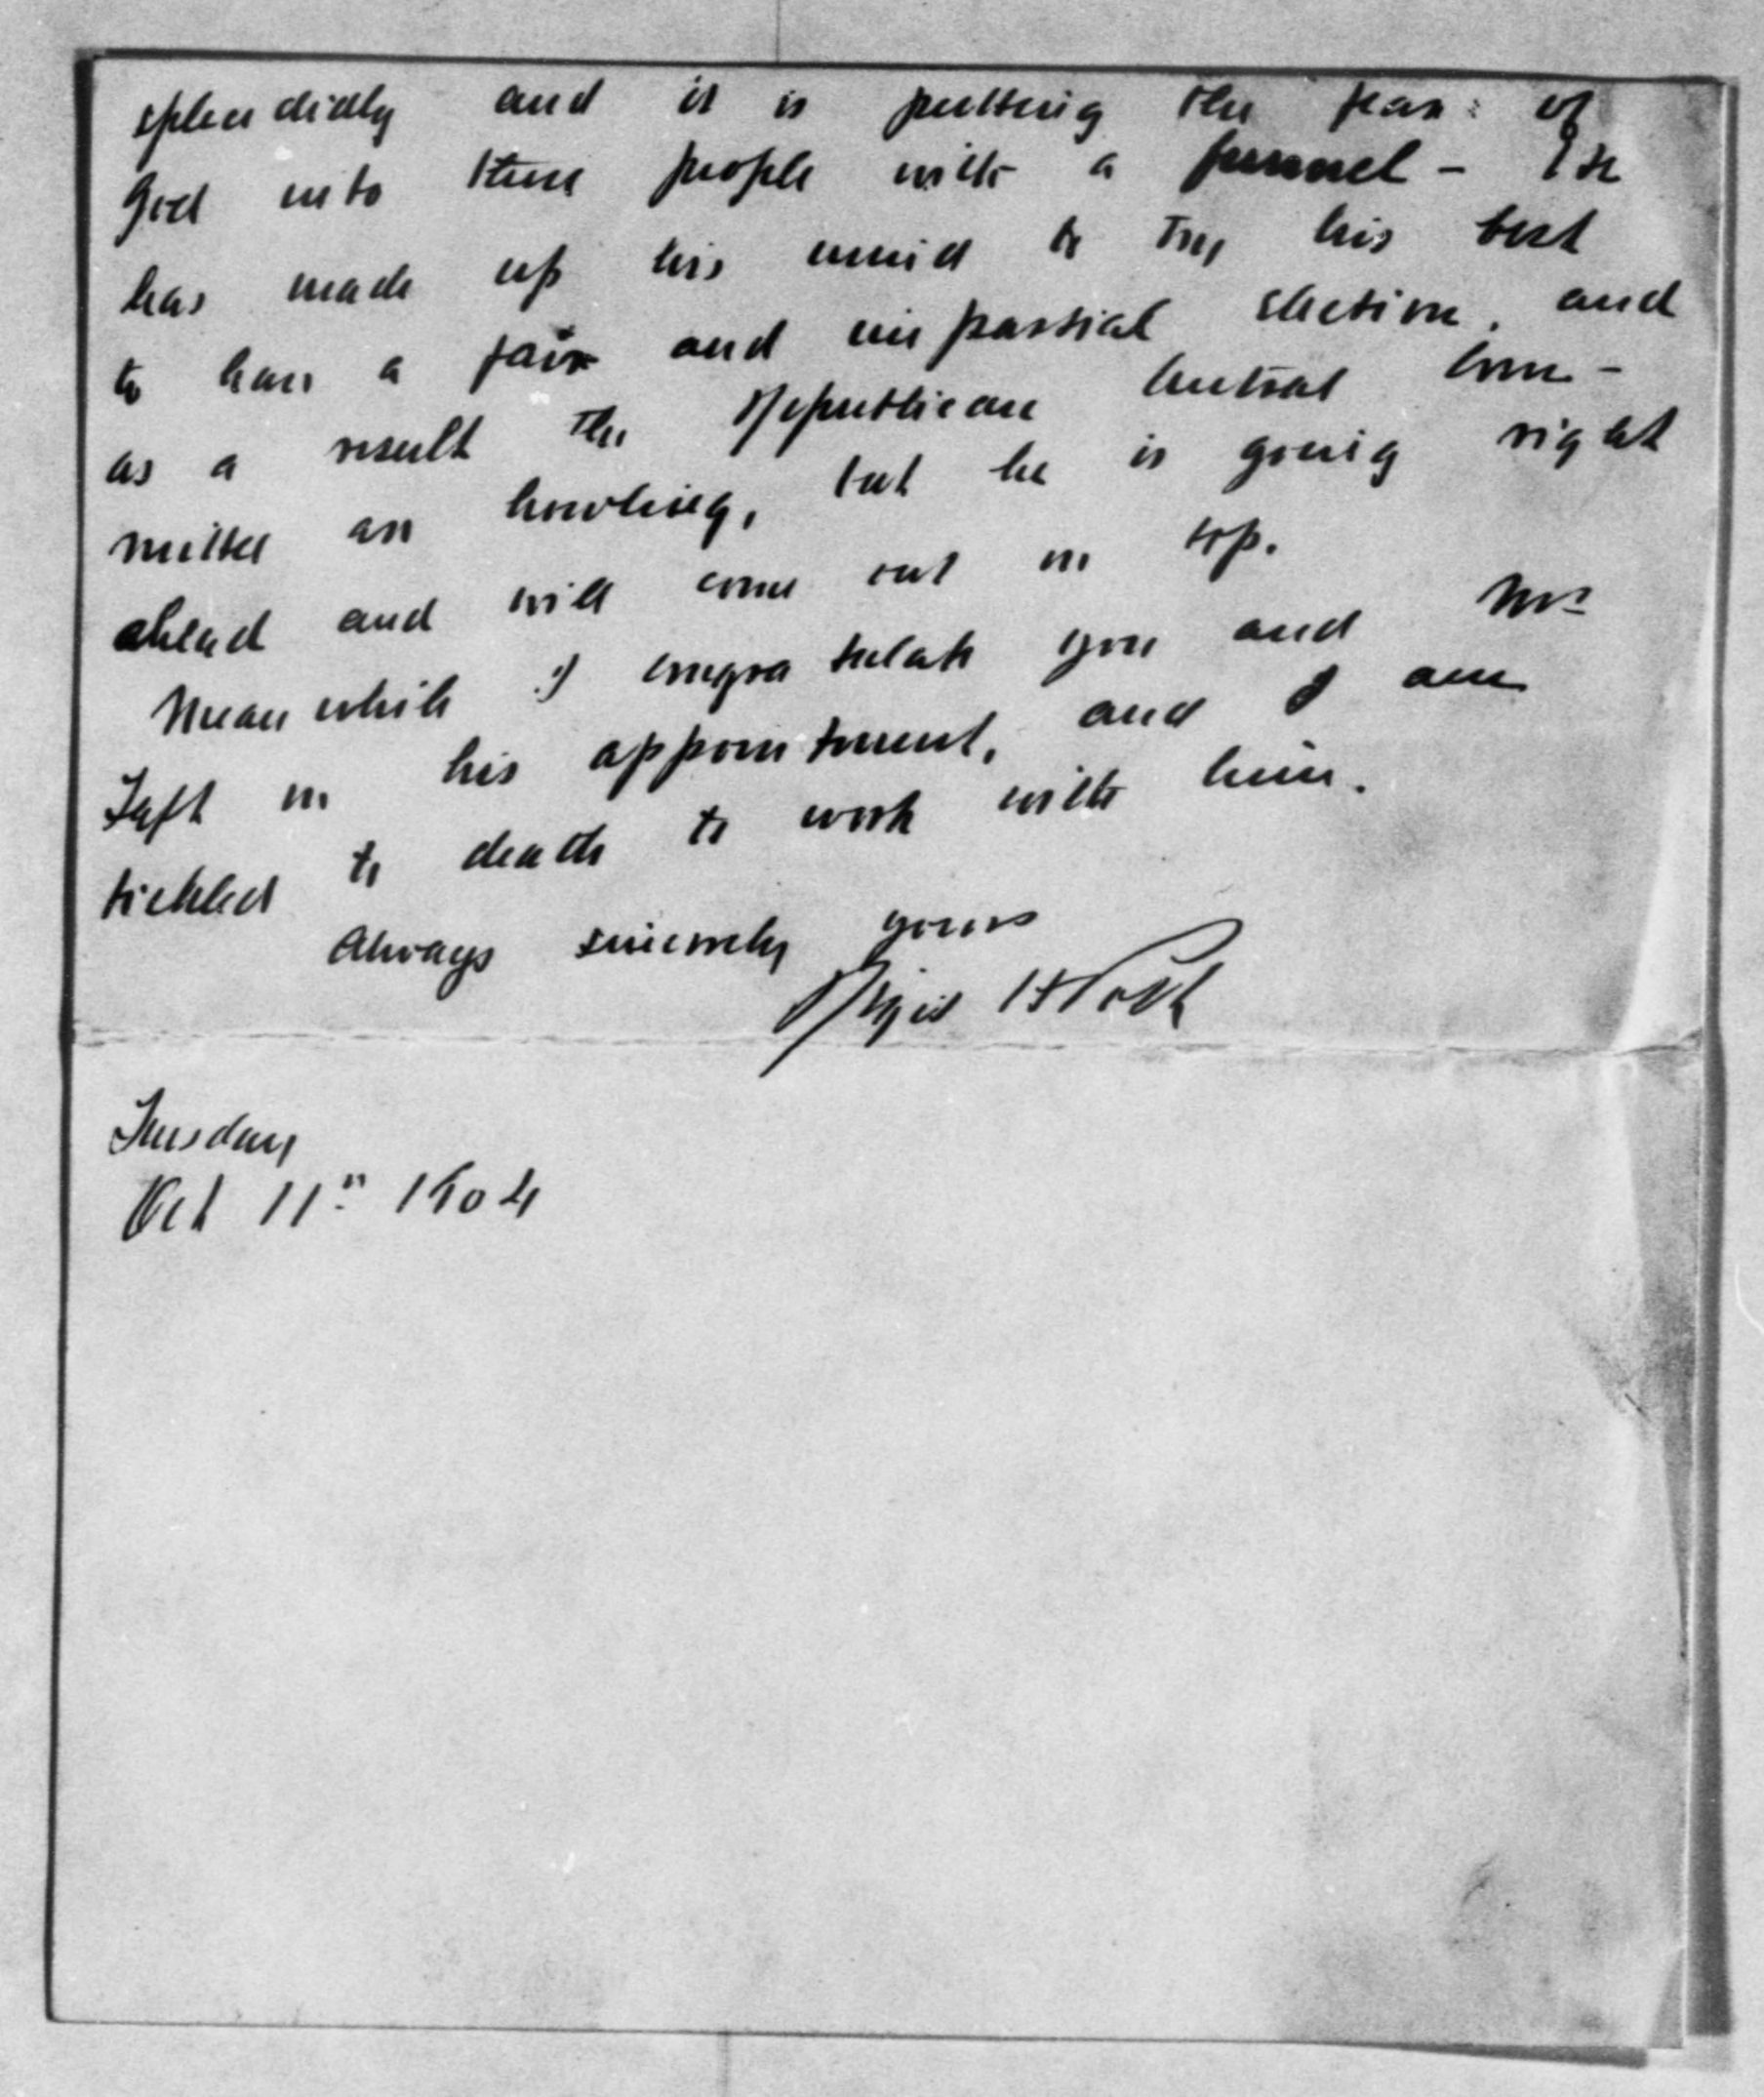 splendidly and it is putting the fear of
God into these people with a funnel - He
has made up his mind to try his best
to have a fair and impartial election, and
as a result the Republican Central Com-
mittee are howling, but he is going right
ahead and will come out on top.
Meanwhile I congratulate you and Mr
Taft on his appointment, and I am
tickled to death to work with him.
Always sincerely yours
Regis H Post
Tuesday
Oct 11" 1904